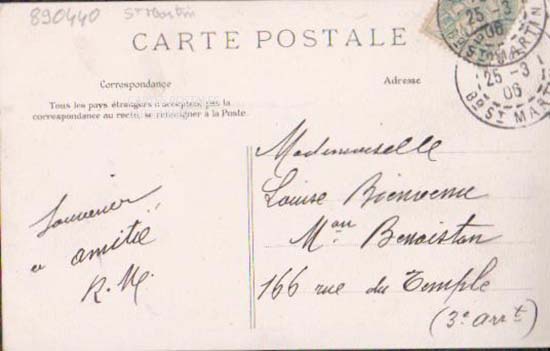 890440 St Martin
CARTE POSTALE
Correspondance
Adresse
Tous les pays étrangers n'acceptent pas la
correspondance au recto, se renseigner à la Poste.
25 - 3
06
ST MARTIN
25 - 3
06
BD ST MARTIN
Souvenir
et amitié
R. M.
Mademoiselle
Louise Bienvenu
Mon Benoistan
166 rue du Temple
(3e arrt)